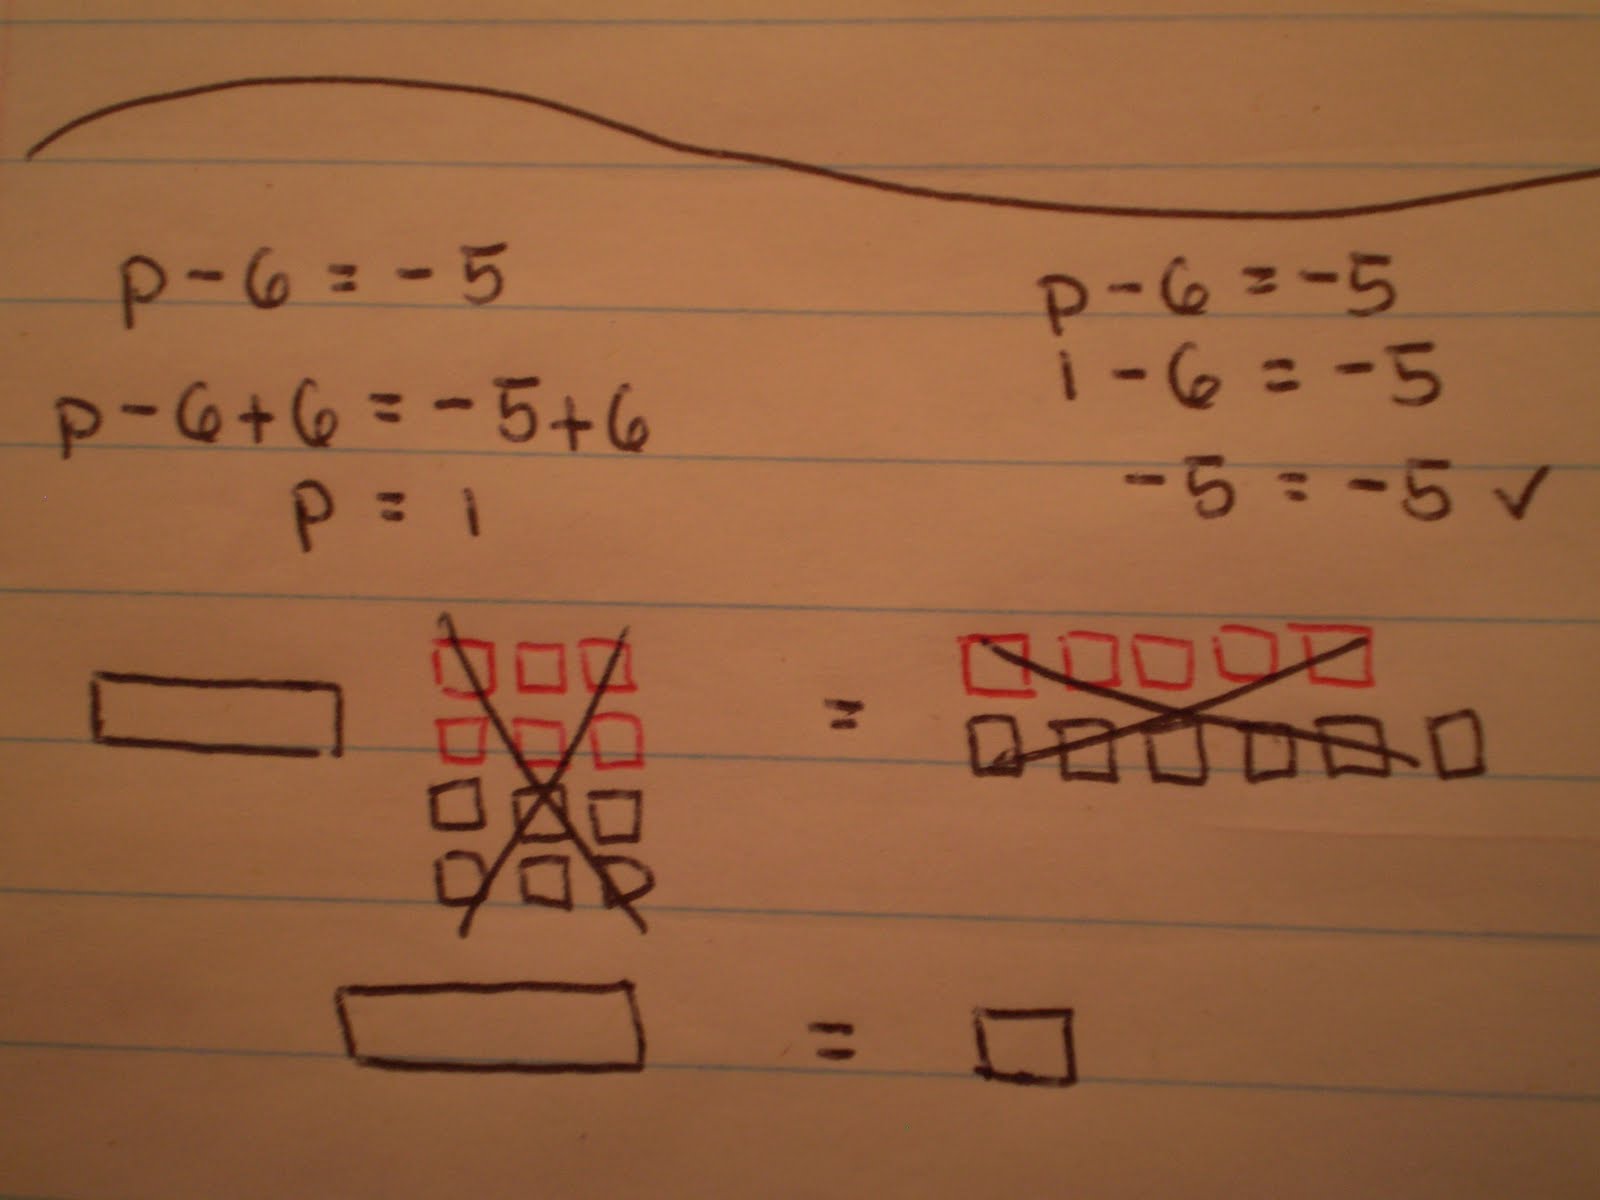 p - 6 = - 5
p - 6 + 6 = - 5 + 6
p = 1
p - 6 = - 5
1 - 6 = - 5
- 5 = - 5 ✓
=
=